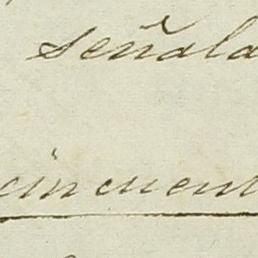 señala
cincuent